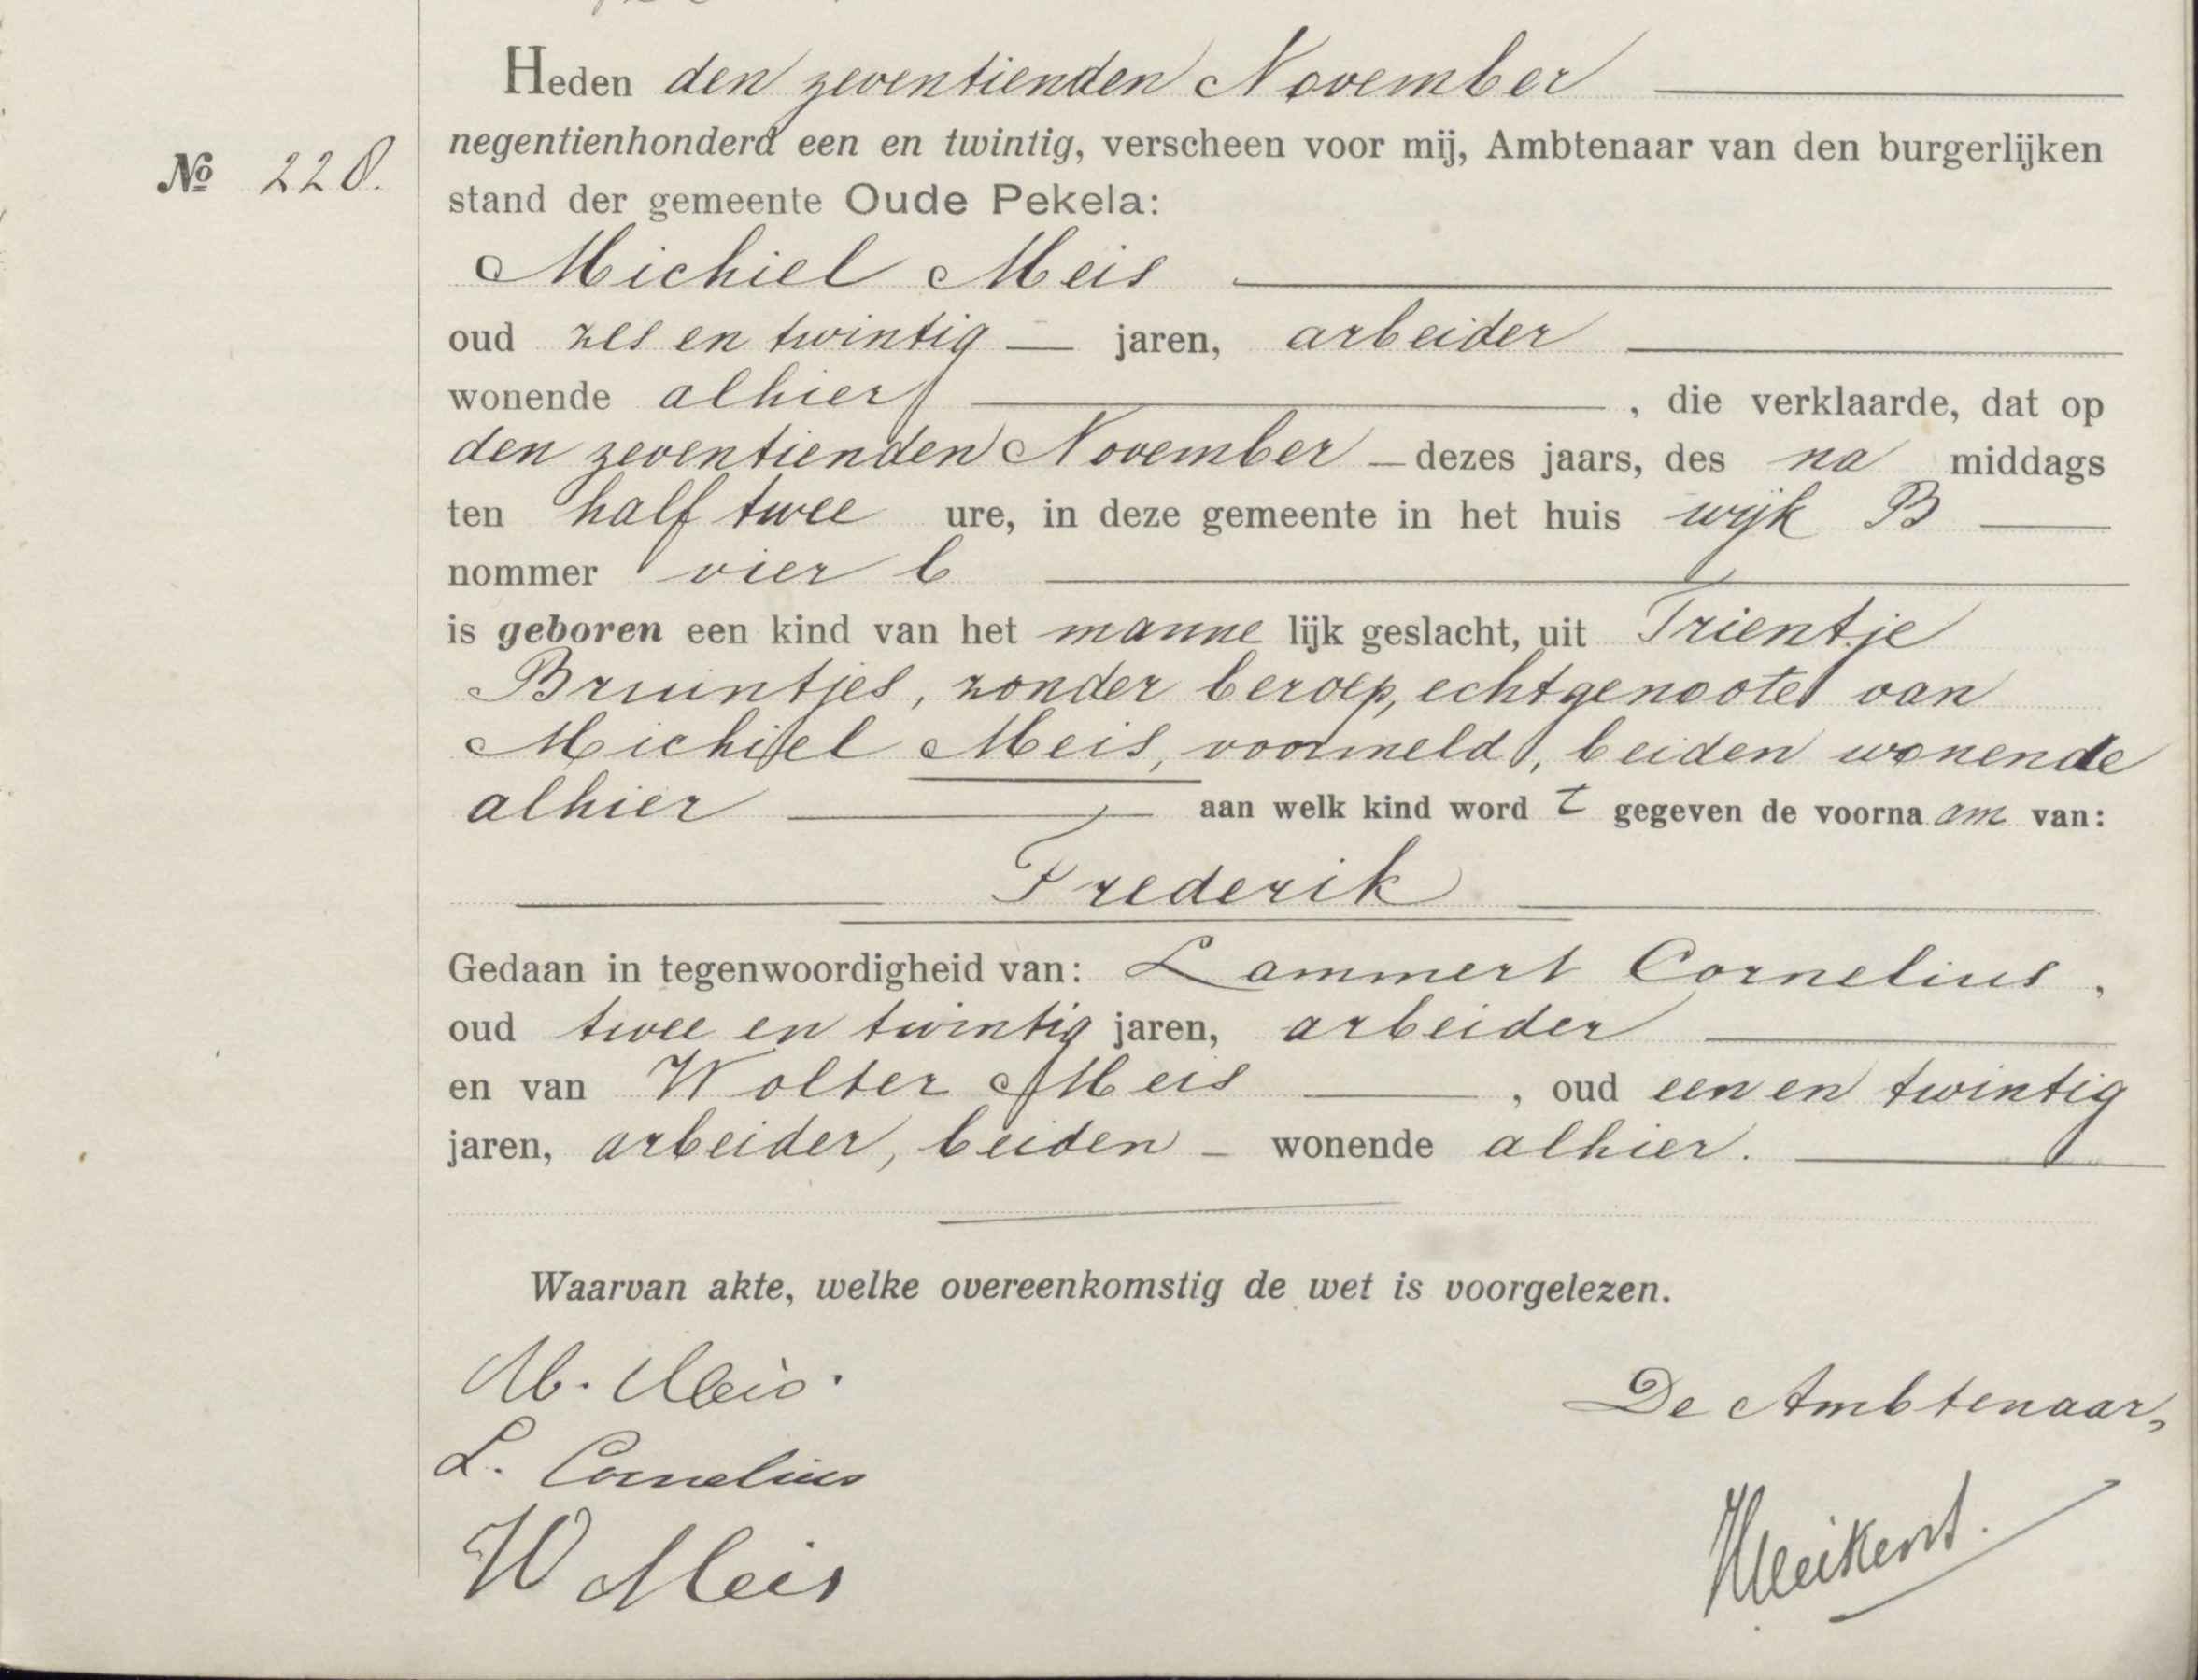 Heden den zeventienden November
negentienhonderd een en twintig, verscheen voor mij, Ambtenaar van den burgerlijken
No 228.
stand der gemeente Oude Pekela:
Michiel Meis
oud zes en twintig jaren, arbeider
wonende alhier, die verklaarde, dat op
den zeventienden November dezes jaars, des na middags
ten half twee ure, in deze gemeente in het huis wijk B
nommer vier b
is geboren een kind van het manne lijk geslacht, uit Trientje
Bruintjes, zonder beroep, echtgenoote van
Michiel Meis, voormeld, beiden wonende
alhier aan welk kind word t gegeven de voorna am van:
Frederik
Gedaan in tegenwoordigheid van: Lammert Cornelius,
oud twee en twintig jaren, arbeider
en van Wolter Meis, oud een en twintig
jaren, arbeider, beiden wonende alhier.
Waarvan akte, welke overeenkomstig de wet is voorgelezen.
M. Meis.
De Ambtenaar,
L. Cornelius
W Meis